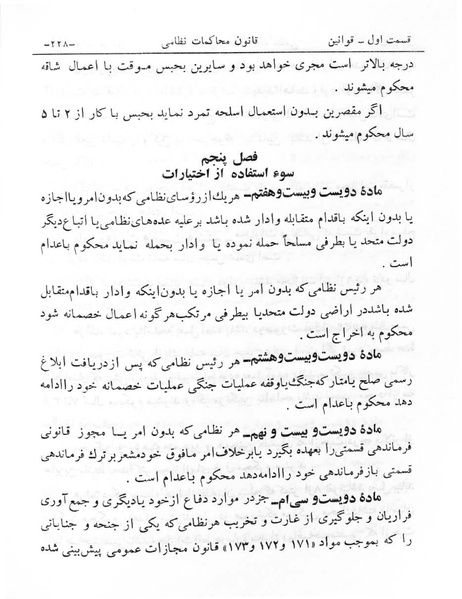 قسمت اول ـ قوانین قانون محاکمات نظامی -۲۲۸-
درجه بالاتر است مجری خواهد بود و سایرین بحبس موقت با اعمال شاقه
محکوم میشوند .
اگر مقصرین بدون استعمال اسلحه تمرد نماید بحبس با کار از ۲ تا ۵
سال محکوم میشوند .
فصل پنجم
سوء استفاده از اختیارات
مادهٔ دویست وبیست وهفتم ـ هریك از رؤسای نظامی که بدون امر یا اجازه
یا بدون اینکه باقدام متقابله وادار شده باشد برعلیه عده‌های نظامی یا اتباع دیگر
دولت متحد یا بطرفی مسلحاً حمله نموده یا وادار بحمله نماید محکوم باعدام
است .
هر رئیس نظامی که بدون امر یا اجازه یا بدون اینکه وادار باقدام متقابل
شده باشد در اراضی دولت متحد یا بیطرفی مرتکب هر گونه اعمال خصمانه شود
محکوم به اخراج است .
مادهٔ دویست وبیست وهشتم ـ هر رئیس نظامی که پس از دریافت ابلاغ
رسمی صلح یا متارکه جنگ یا وقفه عملیات جنگی عملیات خصمانه خود را ادامه
دهد محکوم باعدام است .
مادهٔ دویست و بیست و نهم ـ هر نظامی که بدون امر یا مجوز قانونی
فرماندهی قسمتی را بعهده بگیرد یا برخلاف امر مافوق خود مشعر بر ترك فرماندهی
قسمتی باز فرماندهی خود را ادامه دهد محکوم باعدام است .
مادهٔ دویست و سی‌ام ـ جز در موارد دفاع از خود یا دیگری و جمع آوری
فراریان و جلوگیری از غارت و تخریب هر نظامی که یکی از جنحه و جنایاتی
را که بموجب مواد «۱۷۱ و ۱۷۲ و ۱۷۳» قانون مجازات عمومی پیش‌بینی شده